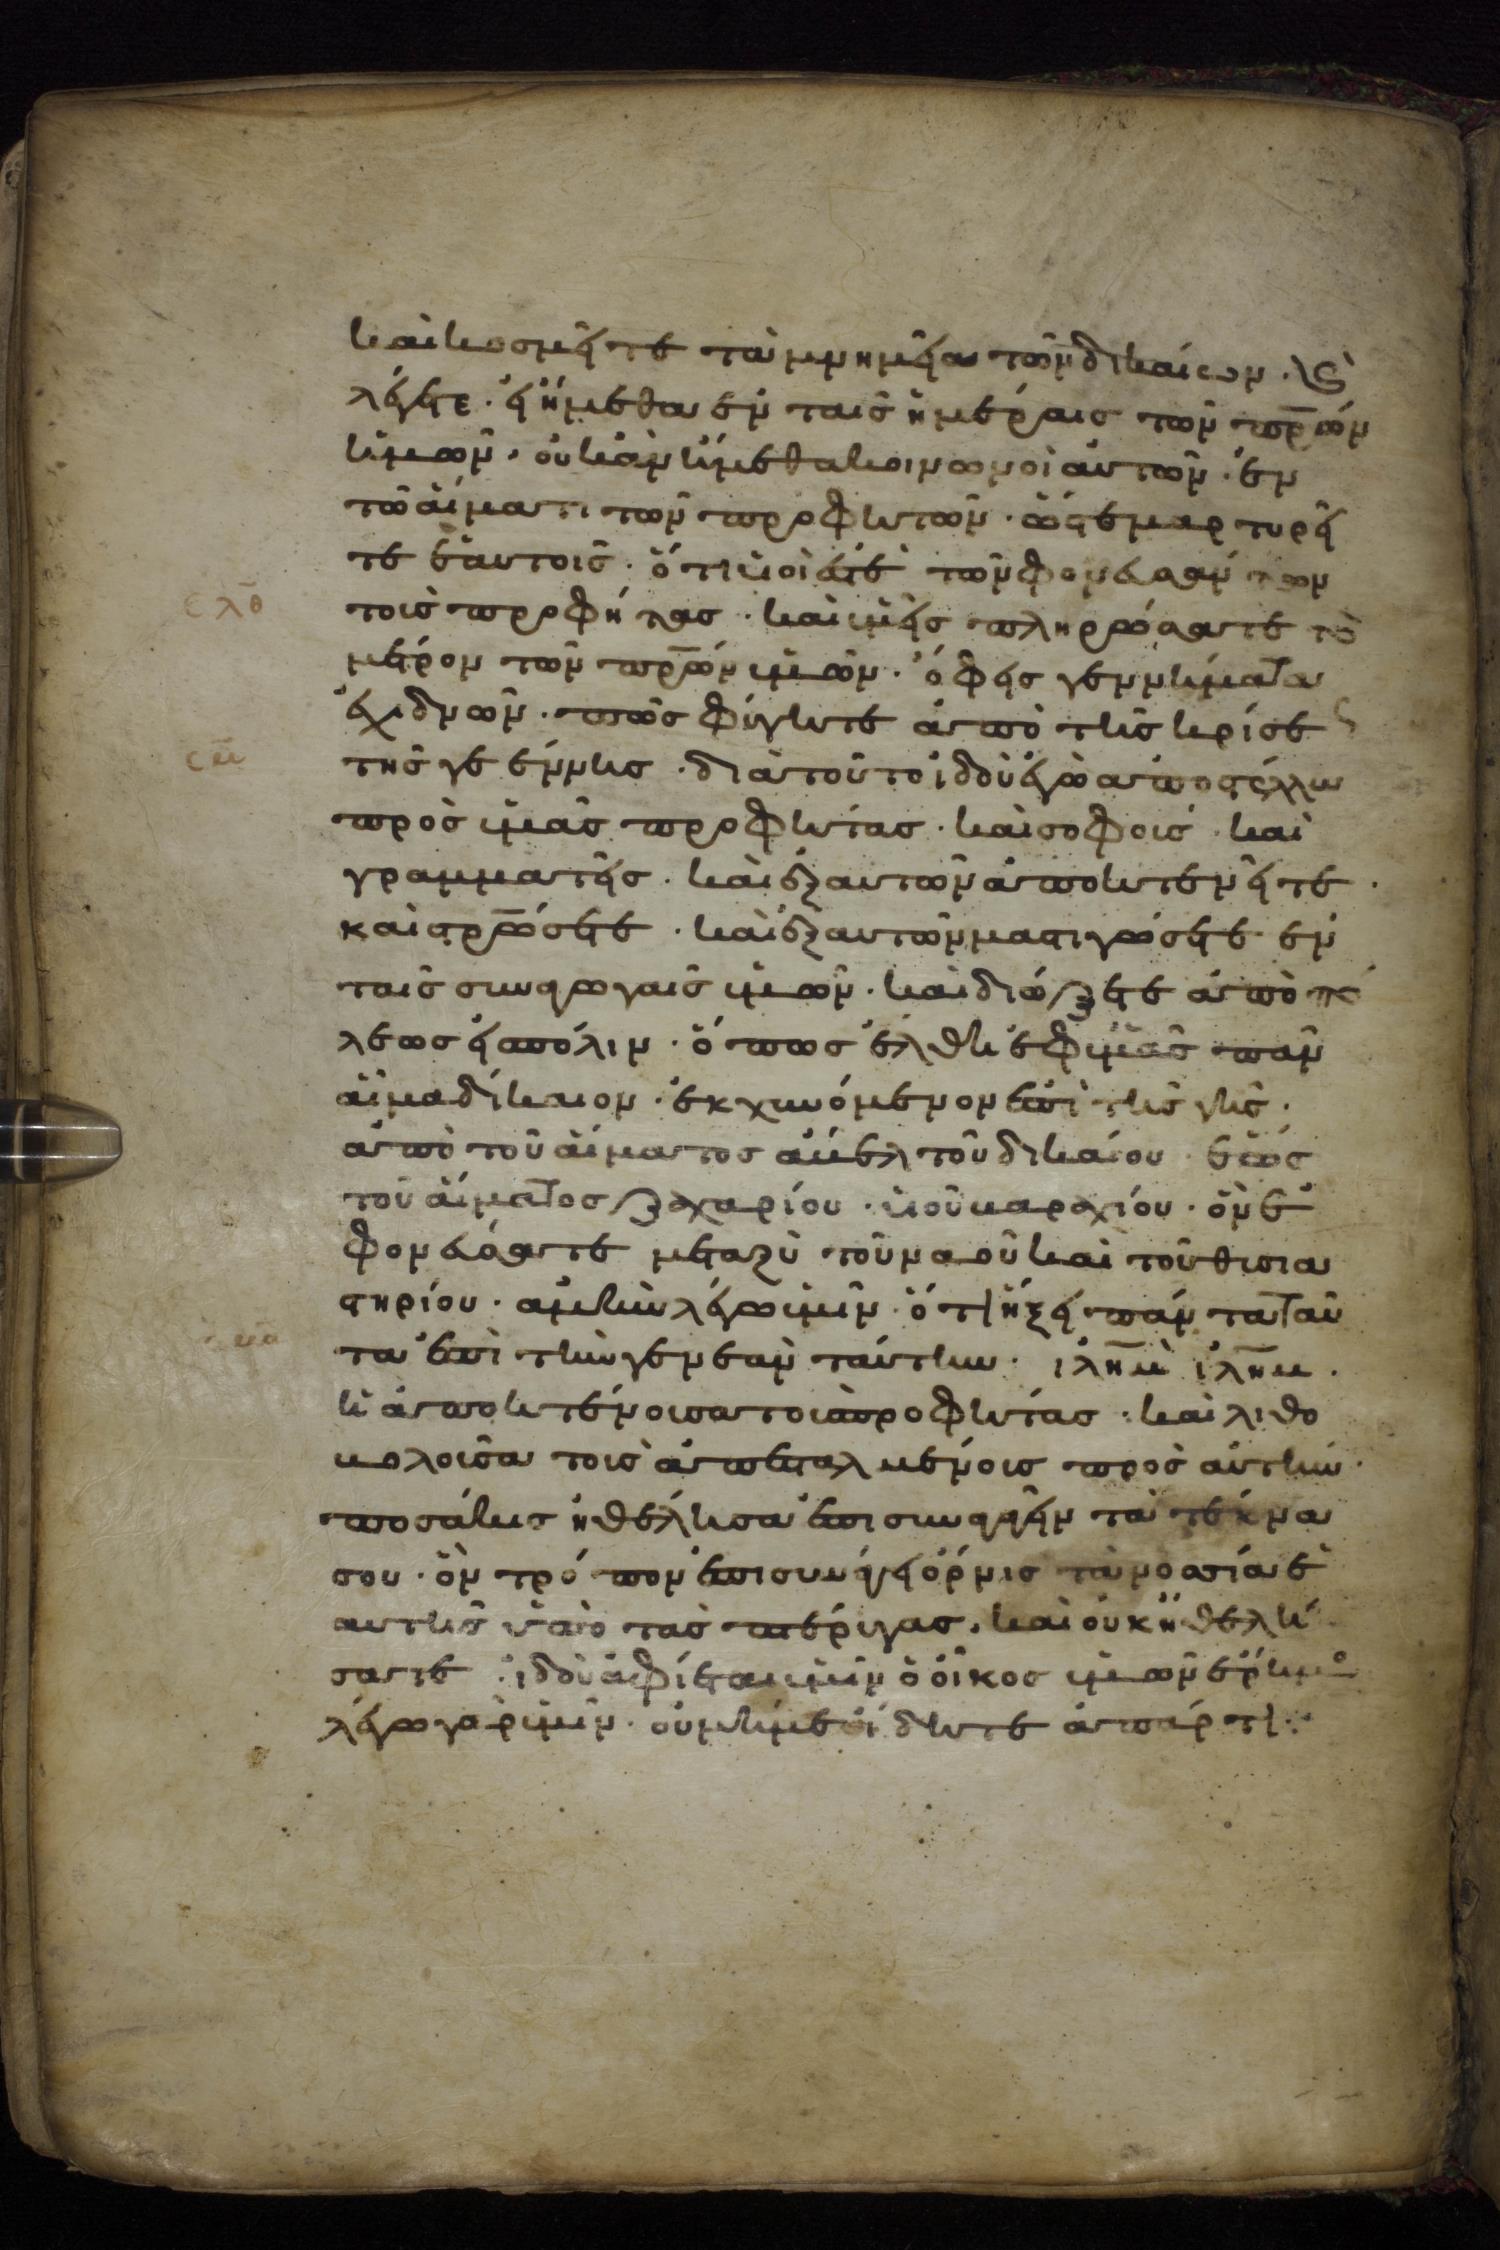 καὶ κοσμεῖτε τὰ μνημεῖα τῶν δικαίων · κ(αὶ)
λέγετε · εἰ ἤμεθα ἐν ταῖς ἡμέραις τῶν πρ̅ων
ἡμῶν · οὐκ ἂν ἤμεθα κοινωνοὶ αὐτῶν · ἐν
τῶ αἵματι τῶν προφητῶν · ὥστε μαρτυρεῖ
τε ἑαυτοῖς · ὅτι υἱοί ἐστε τῶν φονευσάντων
τοὺς προφήτας · καὶ ὑμεῖς πληρώσατε τὸ
μέτρον τῶν πρ̅ων ὑμῶν · ὄφεις γεννήματα
ἐχιδνῶν · πῶς φύγητε ἀπὸ τῆς κρίσε
ς
ελθ̅
τῆς γεέννης · διὰ τοῦτο ἰδοὺ ἐγὼ ἀποστέλλω
ςμ̅
πρὸς ὑμᾶς προφήτας · καὶ σοφοὺς · καὶ
γραμματεῖς · καὶ ἐξ αὐτῶν ἀποκτενεῖτε ·
καὶ στρ̅ώσετε · καὶ ἐξ αὐτῶν μαστιγώσετε ἐν
ταῖς συναγωγαῖς ὑμῶν · καὶ διώξετε ἀπὸ πό
λεως εἰς πόλιν · ὅπως ἔλθη ἐφ ὑμᾶς πᾶν
αἷμα δίκαιον · ἐκχυνόμενον ἐπὶ τῆς γῆς ·
ἀπὸ τοῦ αἵματος ἄβελ τοῦ δικαίου · ἕως
τοῦ αἵματος ζαχαρίου · υἱοῦ βαραχίου · ὃν ἐ
φονεύσατε μεταξὺ τοῦ ναοῦ καὶ τοῦ θυσια
στηρίου · ἀμὴν λέγω ὑμῖν · ὅτι ἥξει πάντα ταῦ
τα ἐπὶ τὴν γενεὰν ταύτην · ἰλη̅μ ἰλη̅μ ·
ἡ ἀποκτένουσα τοὺς προφήτας · καὶ λιθο
βολοῦσα τοὺς ἀπεσταλμένους πρὸς αὐτήν ·
ποσάκις ἠθέλησα ἐπισυναγαγεῖν τὰ τέκνα
σου · ὃν τρόπον ἐπισυνάγει ὄρνις τὰ νοσσία ἑ
αυτῆς ὑπὸ τὰς πτέρυγας · καὶ οὐκ ἠθελή
σατε · ἰδοὺ ἀφίεται ὑμῖν ὁ οἶκος ὑμῶν ἔρημο
λέγω γὰρ ὑμῖν · οὐ μή με ἴδητε ἀπάρτι ·